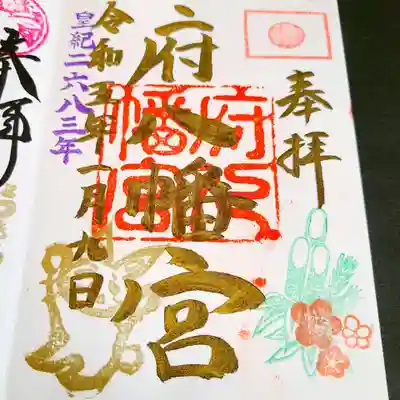 奉拝
府八幡宮
府八幡宮
令和五年一月九日
皇紀二六八三年
奉拝